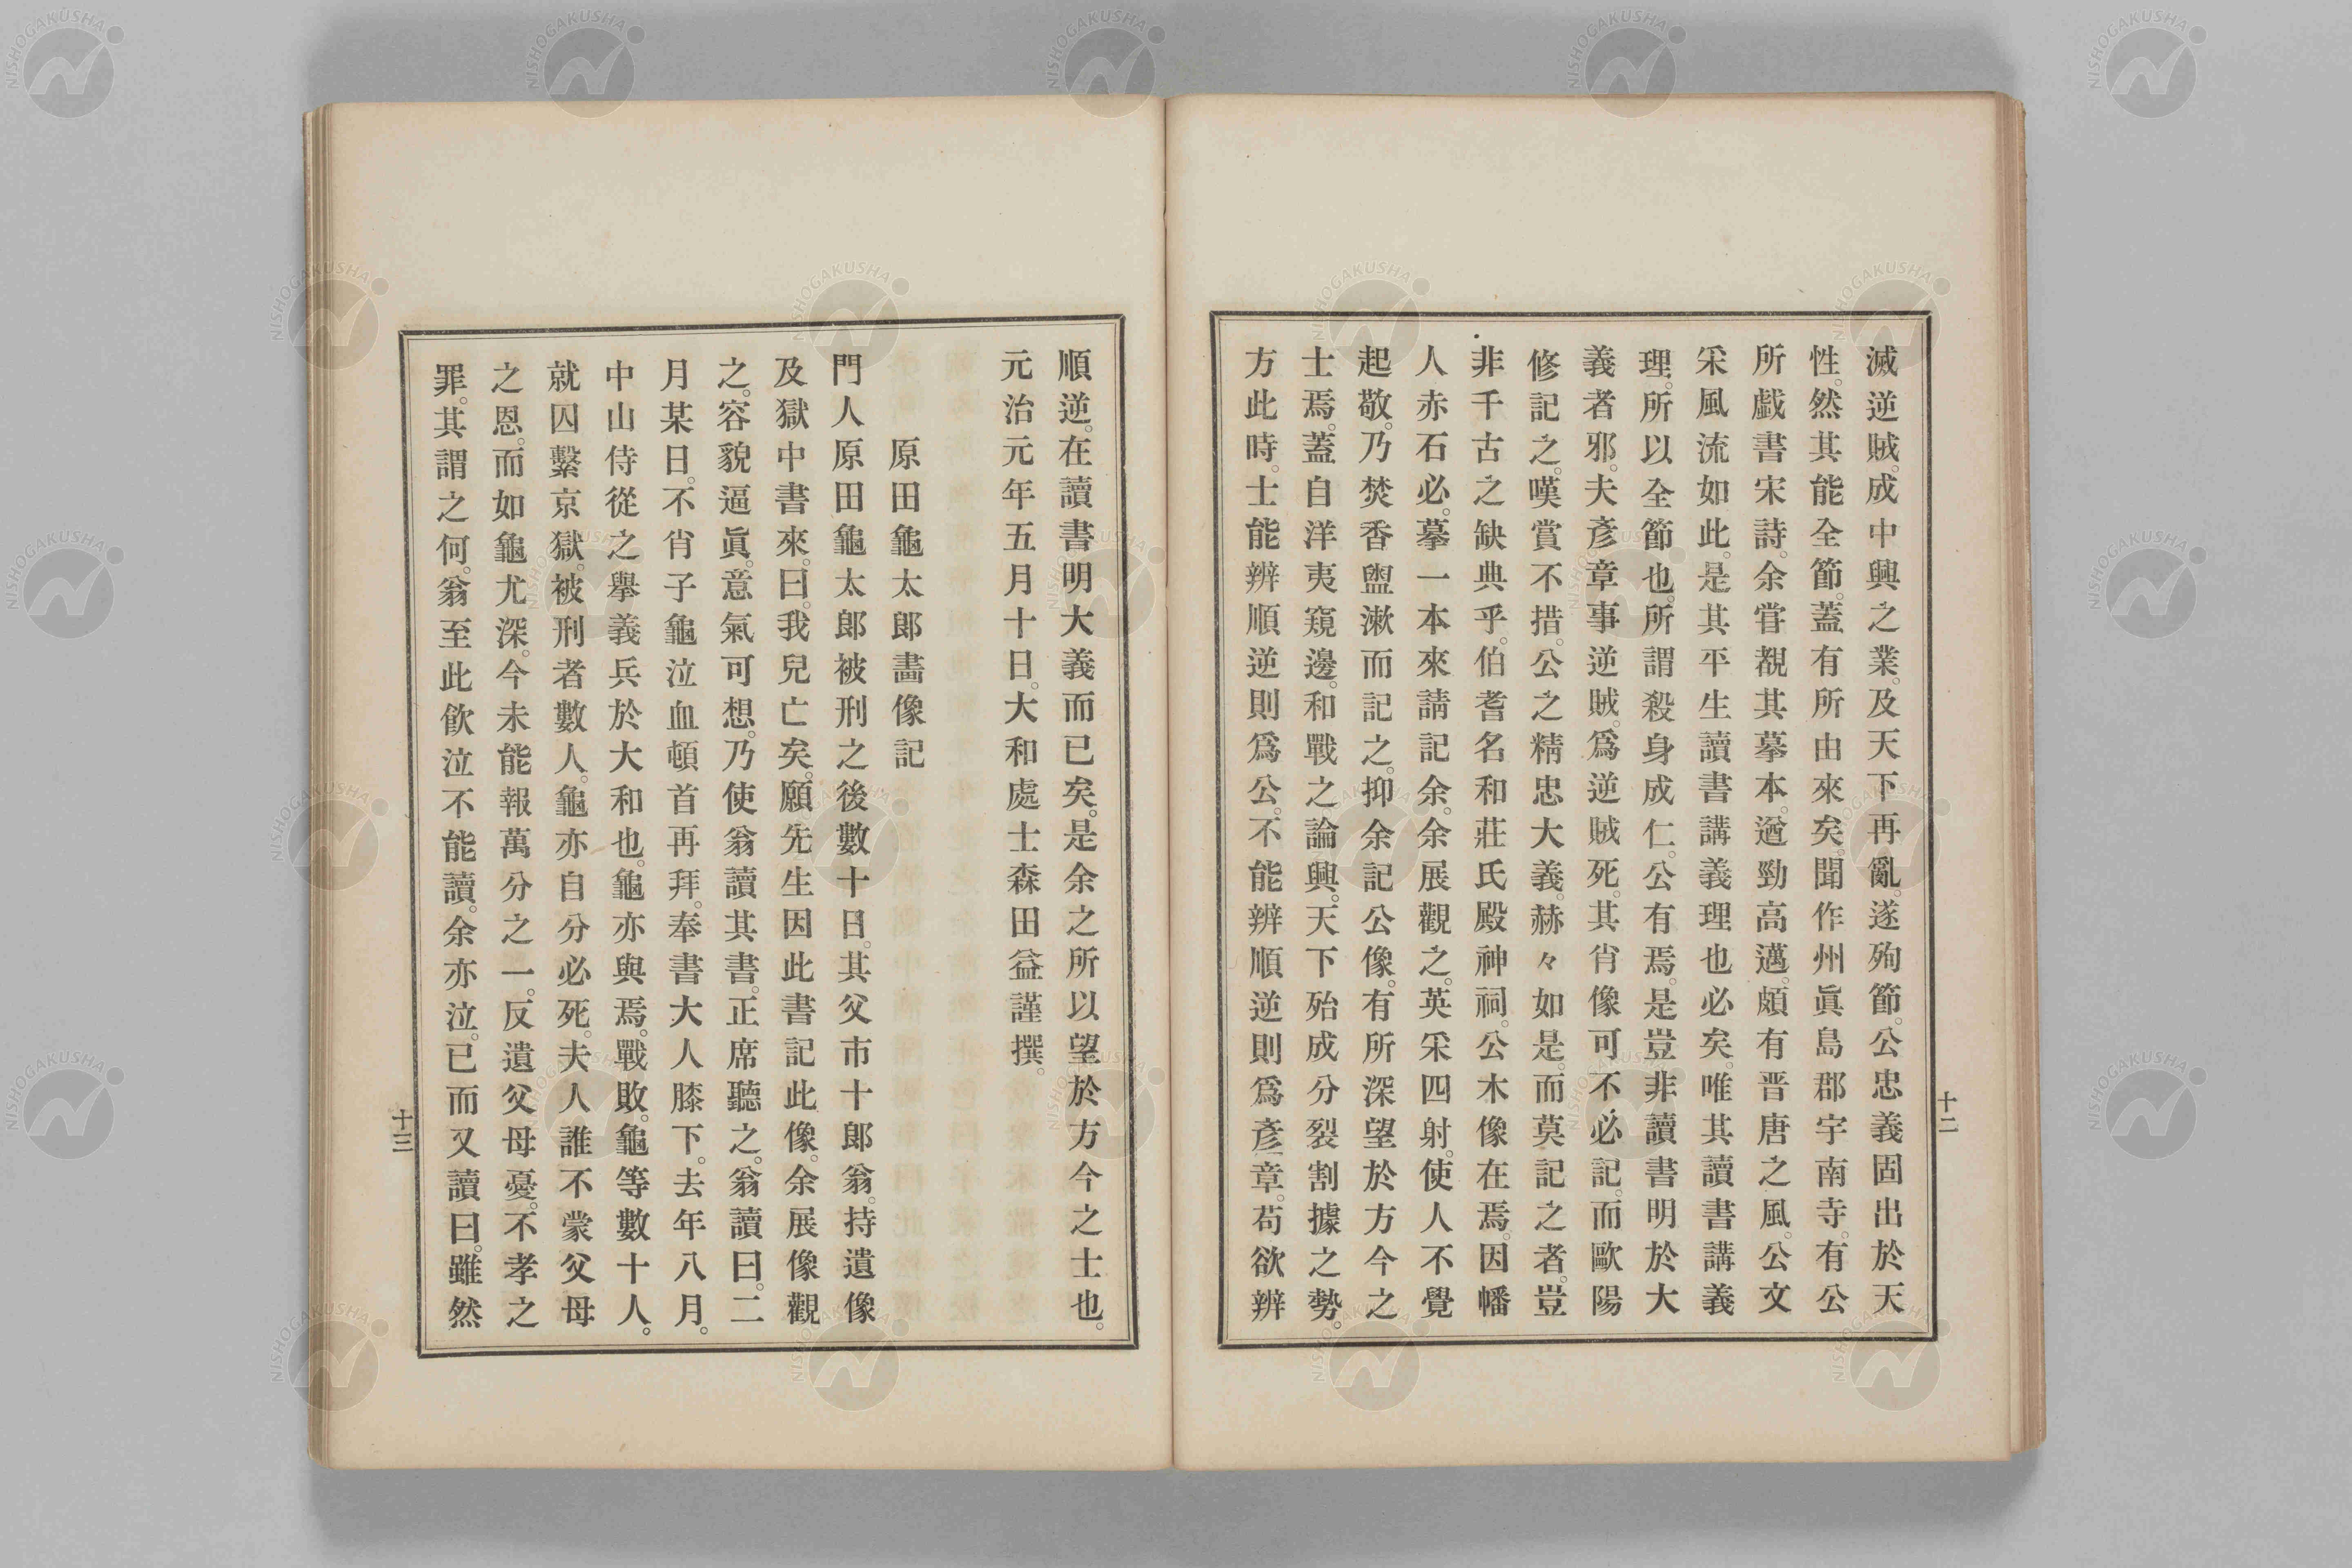 滅逆賊。成中興之業。及天下再亂。遂殉節。公忠義固出於天
性。然其能全節。蓋有所由來矣。聞作州眞島郡宇南寺。有公
所戲書宋詩。余甞覩其摹本。遒勁高邁。頗有晋唐之風。公文
采風流如此。是其平生讀書講義理也必矣。唯其讀書講義
理。所以全節也。所謂殺身成仁。公有焉。是豈非讀書明於大
義者邪。夫彥章事逆賊。爲逆賊死。其肖像可不必記。而歐陽
修記之。嘆賞不措。公之精忠大義。赫々如是。而莫記之者。豈
非千古之缺典乎。伯耆名和莊氏殿神祠。公木像在焉。因幡
人赤石必。摹一本來請記余。余展觀之。英采四射。使人不覺
起敬。乃焚香盥漱而記之。抑余記公像。有所深望於方今之
士焉。蓋自洋夷窺邊。和戰之論興。天下殆成分裂割據之勢。
方此時。士能辨順逆則爲公。不能辨順逆則爲彥章。苟欲辨
十二
順逆。在讀書明大義而已矣。是余之所以望於方今之士也。
元治元年五月十日。大和處士森田益謹撰。
原田龜太郎畵像記
門人原田龜太郎被刑之後數十日。其父市十郎翁。持遺像
及獄中書來。曰。我兒亡矣。願先生因此書記此像。余展像觀
之。容貌逼眞。意氣可想。乃使翁讀其書。正席聽之。翁讀曰。二
月某日。不肖子龜泣血頓首再拜。奉書大人膝下。去年八月。
中山侍從之擧義兵於大和也。龜亦與焉。戰敗。龜等數十人。
就囚繫京獄。被刑者數人。龜亦自分必死。夫人誰不蒙父母
之恩。而如龜尤深。今未能報萬分之一。反遺父母憂。不孝之
罪。其謂之何。翁至此飮泣不能讀。余亦泣。已而又讀曰。雖然
十三
NISHOGAKUSHA